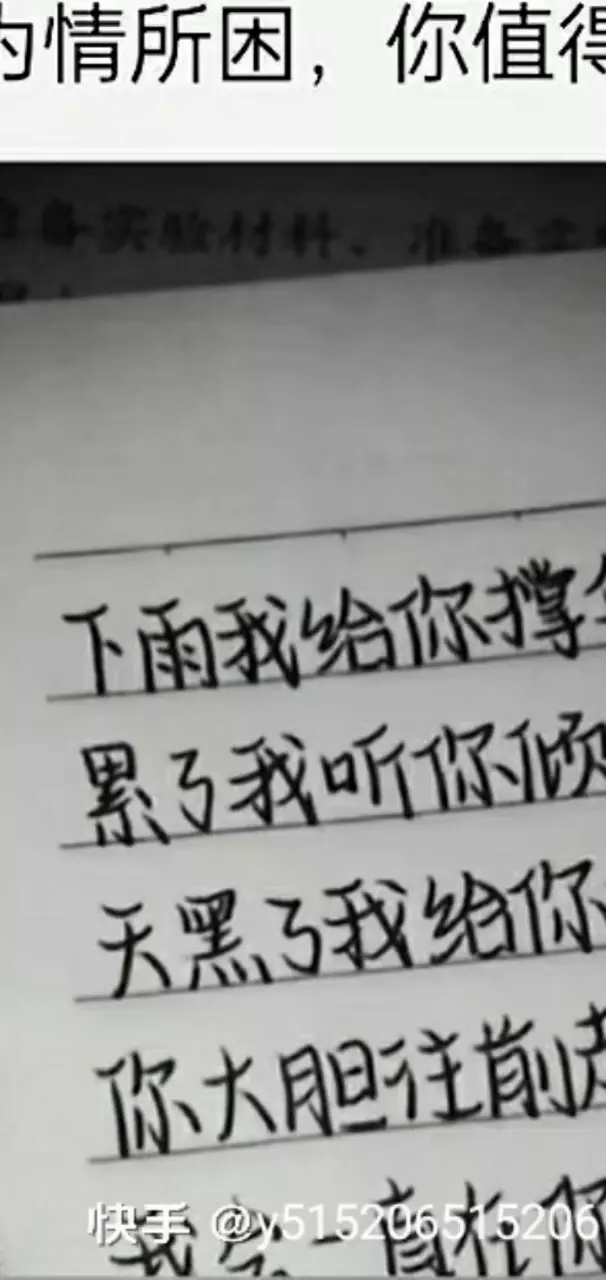 为情所困，你值得
准备实验材料、准备实
下雨我给你撑
累了我听你倾
天黑了我给你
你大胆往前走
我会一直在你
快手 @y515206515206